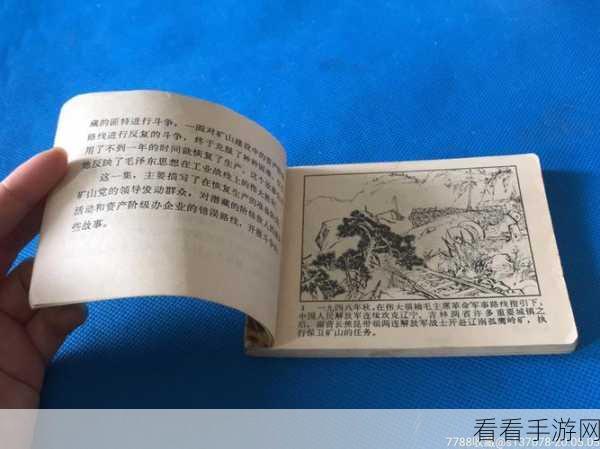 藏的匪特进行斗争,一面对矿山建设中的资产
路线进行反复的斗争,终于克服了种种
用了不到一年的时间就恢复了生产,这个故事
地反映了毛泽东思想在工业战线上的伟大胜利
这一集,主要描写了在恢复生产的准备
矿山党的领导发动群众,对潜藏的阶级敌人的
活动和资产阶级办企业的错误路线,开展斗争的
些故事。
1 一九四八年秋,在伟大领袖毛主席革命军事路线指引下,
中国人民解放军连续攻克辽宁、吉林两省许多重要城镇之
后,副营长焦昆带领两连解放军战士开赴辽南孤鹰岭矿,执
行保卫矿山的任务。
看看手游网